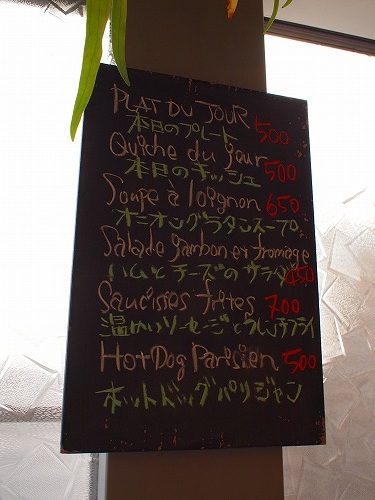 PLAT DU JOUR
本日のプレート 500
Quiche du jour
本日のキッシュ 500
Soupe à loignon 650
オニオングラタンスープ
Salade jambon et fromage
ハムとチーズのサラダ 450
Saucisses frites 700
温かいソーセージとフレンチフライ
HotDog Parisien 500
ホットドッグパリジャン